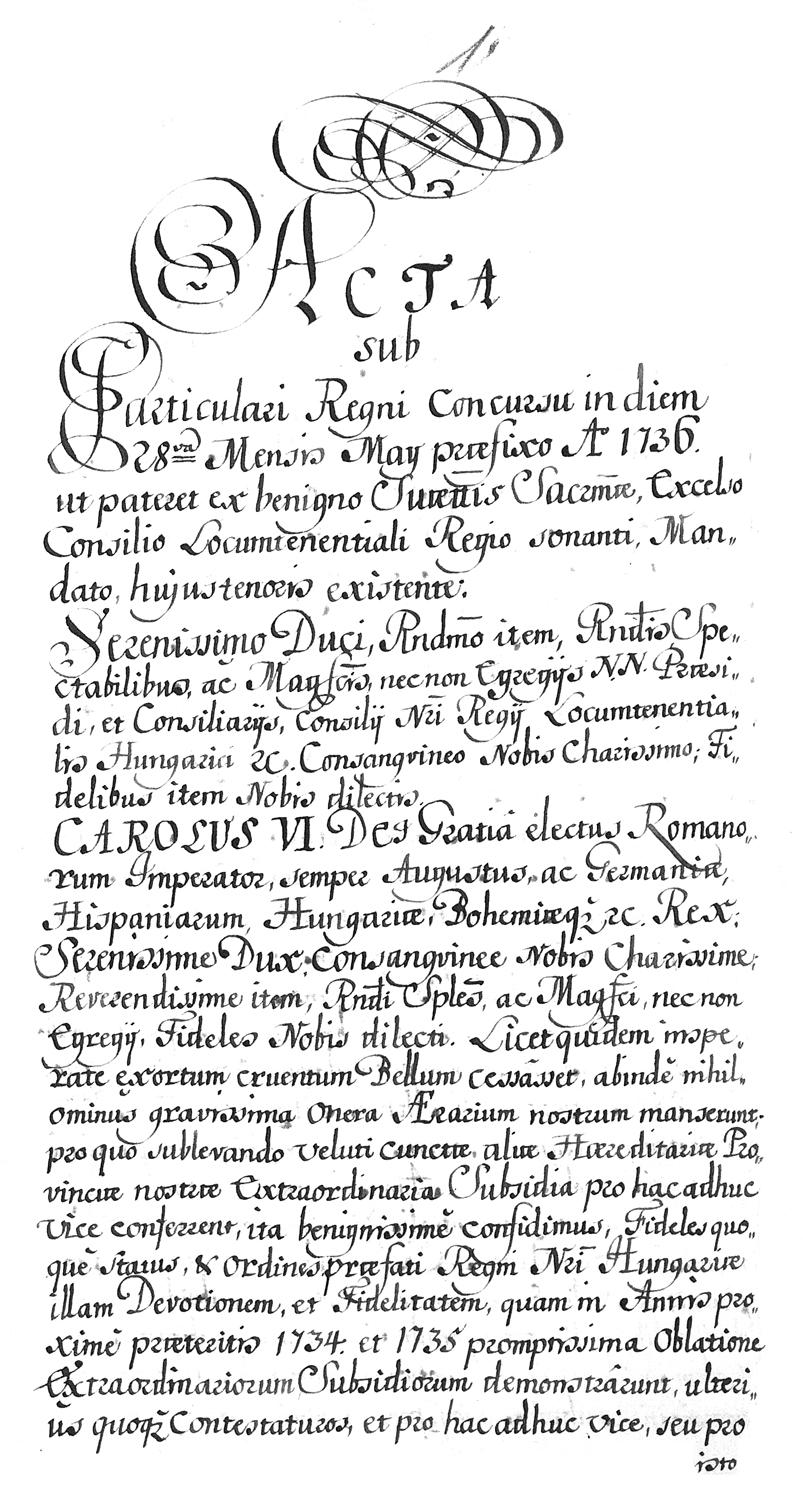 1.
ACTA
sub
Particulari Regni Concursu in diem
28va Mensis May præfixo Ao 1736.
ut pateret ex benigno Suæ Mttis Sacrmæ, Excelso
Consilio Locumtenentiali Regio sonanti, Man„
dato, hujus tenoris existente:
Serenissimo Duci, Rndmō item, Rndis Spe„
ctabilibus, ac Magfcis, nec non Egregijs N.N. Præsi„
di, et Consiliarijs, Consilij Nrī Regij Locumtenentia„
lis Hungarici &c. Consangvineo Nobis Charissimo; Fi„
delibus item Nobis dilectis.
CAROLUS VI. DEI Gratiâ electus Romano„
rum Imperator, semper Augustus, ac Germaniæ,
Hispaniarum, Hungariæ, Bohemiæq; &c. Rex;
Serenissime Dux, Consangvinee Nobis Charissime;
Reverendissime item, Rndi Sples̄, ac Magfci, nec non
Egregij, Fideles Nobis dilecti. Licet quidem inspe„
rate exortum cruentum Bellum cessâsset, abindè nihil„
ominus gravissima Onera Ærarium nostrum manserunt;
pro quo sublevando veluti cunctæ aliæ Hæreditariæ Pro„
vinciæ nostræ Extraordinaria Subsidia pro hac adhuc
vice conferrent, ita benignissimè confidimus, Fideles quo„
què Status, & Ordines præfati Regni Nrī Hungariæ
illam Devotionem, et Fidelitatem, quam in Annis pro„
ximè præteritis 1734. et 1735 promptissima Oblatione
Extraordinariorum Subsidiorum demonstrârunt, ulteri„
ùs quoq; Contestaturos, et pro hac adhuc vice, seu pro
isto